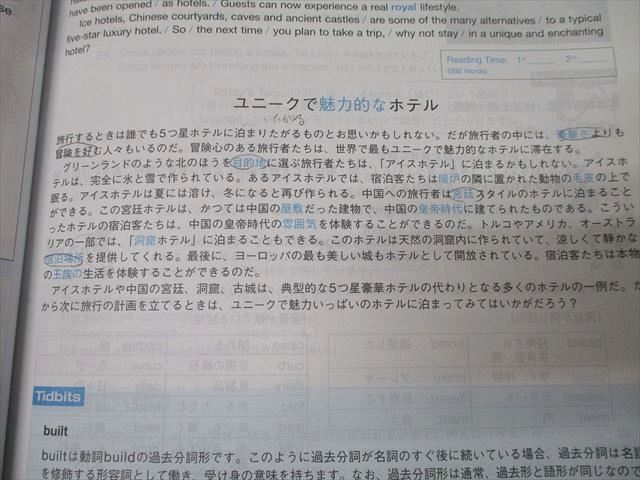 have been opened / as hotels. / Guests can now experience a real royal lifestyle.
Ice hotels, Chinese courtyards, caves and ancient castles / are some of the many alternatives / to a typical
five-star luxury hotel. / So / the next time / you plan to take a trip, / why not stay / in a unique and enchanting
hotel?
Reading Time: 1st 2nd
(200 Words)
ユニークで魅力的なホテル
旅行するときは誰でも5つ星ホテルに泊まりたがるものとお思いかもしれない。だが旅行者の中には、豪華さよりも
冒険を好む人々もいるのだ。冒険心のある旅行者たちは、世界で最もユニークで魅力的なホテルに滞在する。
グリーンランドのような北のほうを目的地に選ぶ旅行者たちは、「アイスホテル」に泊まるかもしれない。アイスホ
テルは、完全に氷と雪で作られている。あるアイスホテルでは、宿泊客たちは暖炉の隣に置かれた動物の毛皮の上で
眠る。アイスホテルは夏には溶け、冬になると再び作られる。中国への旅行者は宮廷スタイルのホテルに泊まること
ができる。この宮廷ホテルは、かつては中国の屋敷だった建物で、中国の皇帝時代に建てられたものである。こうい
ったホテルの宿泊客たちは、中国の皇帝時代の雰囲気を体験することができるのだ。トルコやアメリカ、オーストラ
リアの一部では、「洞窟ホテル」に泊まることもできる。このホテルは天然の洞窟内に作られていて、涼しくて静かな
宿泊場所を提供してくれる。最後に、ヨーロッパの最も美しい城もホテルとして開放されている。宿泊客たちは本物
の王族の生活を体験することができるのだ。
アイスホテルや中国の宮廷、洞窟、古城は、典型的な5つ星豪華ホテルの代わりとなる多くのホテルの一例だ。だ
から次に旅行の計画を立てるときは、ユニークで魅力いっぱいのホテルに泊まってみてはいかがだろう？
Tidbits
built
builtは動詞buildの過去分詞形です。このように過去分詞が名詞のすぐ後に続いている場合、過去分詞は名詞
を修飾する形容詞として働き、受け身の意味を持ちます。なお、過去分詞形は通常、過去形と語形が同じなので